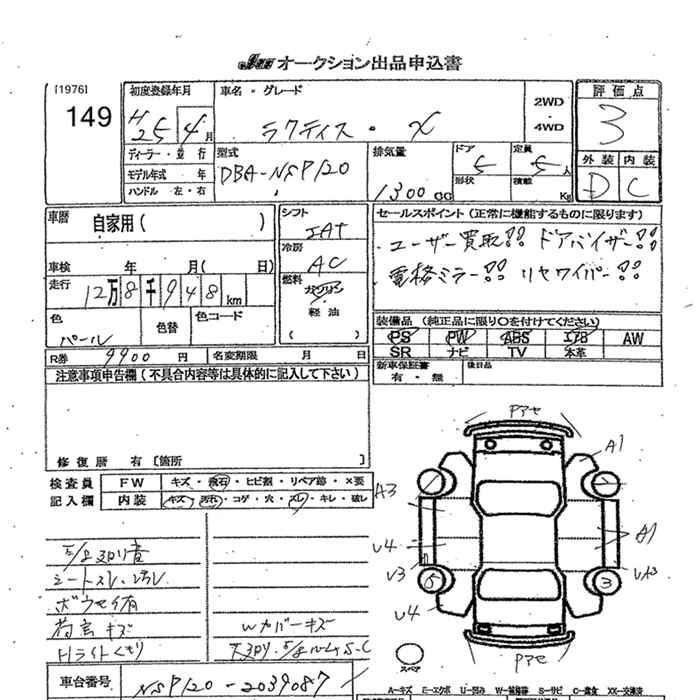 JU オークション出品申込書
[1976]
149
初度登録年月
H25 4月
車名・グレード
ラクティス・X
2WD
・
4WD
評価点
3
外装 内装
D C
ディーラー・並行
モデル年式 年
ハンドル 左・右
型式
DBA-NSP120
排気量
1300 CC
ドア
5
形状
定員
5人
積載 Kg
車歴 自家用( )
シフト
IAT
冷房
AC
燃料
ガソリン
軽油
( )
セールスポイント(正常に機能するものに限ります)
・ユーザー買取!! ドアバイザー!!
・電格ミラー!! リヤワイパー!!
車検 年 月( 日)
走行 12万8千948km
色
パール
色替
色コード
装備品(純正品に限り○を付けてください)
PS PW ABS エアB AW
SR ナビ TV 本革
R券 9900円
名変期限 月 日
新車保証書
有・無
後日品
注意事項申告欄(不具合内容等は具体的に記入して下さい)
修復歴 有[箇所 ]
検査員
記入欄
FW キズ・飛石・ヒビ割・リペア跡・×要
内装 キズ・汚れ・コゲ・穴・スレ・キレ・破レ
シートスレ・汚レ
ボウセイ有
荷室キズ
Hライトくもり
Wカバーキズ
車台番号 NSP120-2039087
Fアセ
A1
A3
A1
U4
U3
5
3
U4
Rアセ
スペア
A-キズ E-エクボ U-凹み W-補修跡 S-サビ C-腐食 XX-交換済